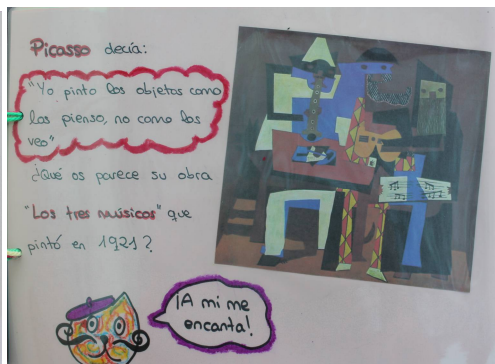 Picasso decía:
"Yo pinto los objetos como
los pienso, no como los
veo"
¿Qué os parece su obra
"Los tres músicos" que
pintó en 1921?
¡A mi me
encanta!